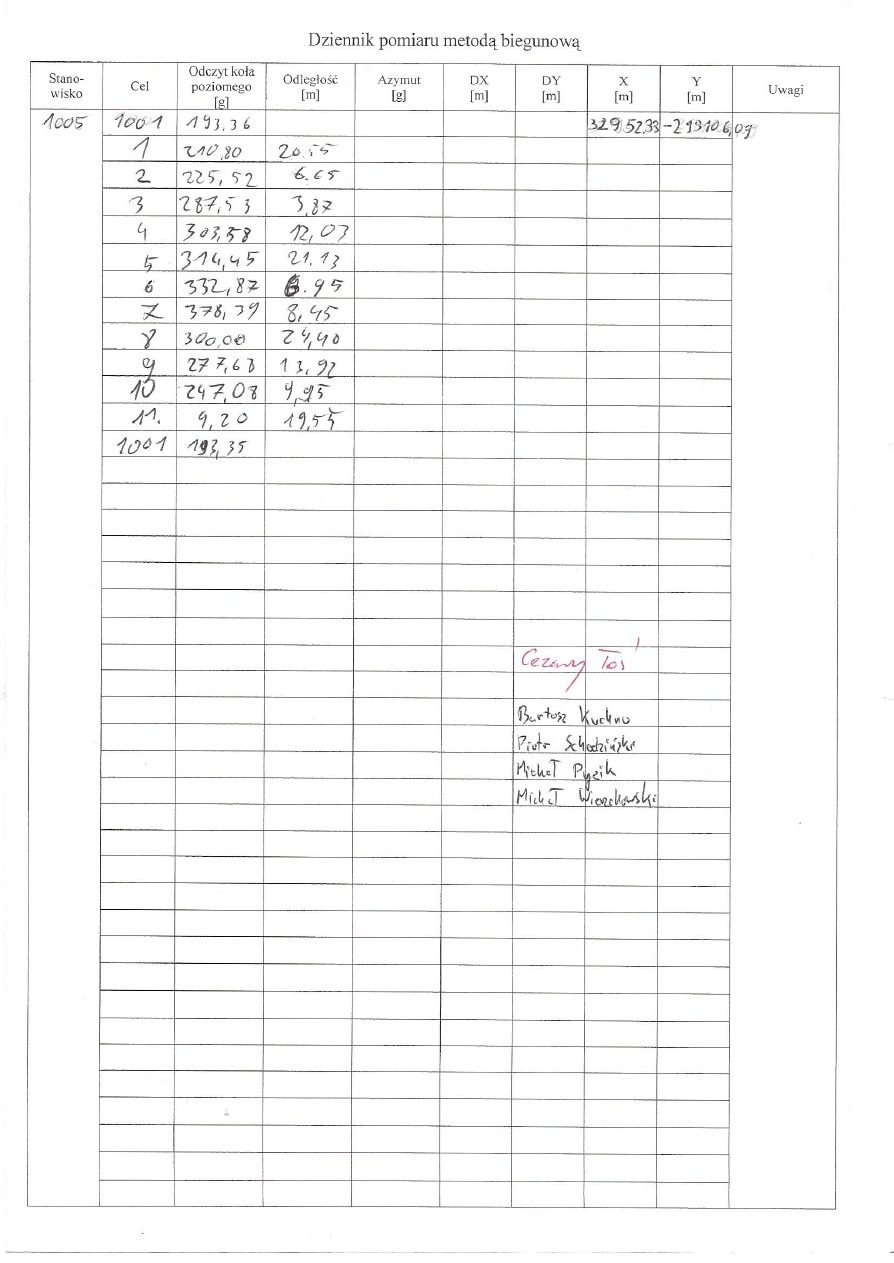 Dziennik pomiaru metodą biegunową
Stano-wisko Cel Odczyt koła poziomego [g] Odległość [m] Azymut [g] DX [m] DY [m] X [m] Y [m] Uwagi
1005 1001 193,36
1 210,80 20.55
2 225,52 6.65
3 287,53 3,87
4 303,58 12,03
5 314,45 21.13
6 332,87 6.95
7 378,39 8,45
8 300,00 24,40
9 277,63 13,92
10 247,08 4,95
11. 9,20 19,55
1001 193,35
Cezary Toś
Bartosz Kuchno
Piotr
Michał Pyzik
Michał